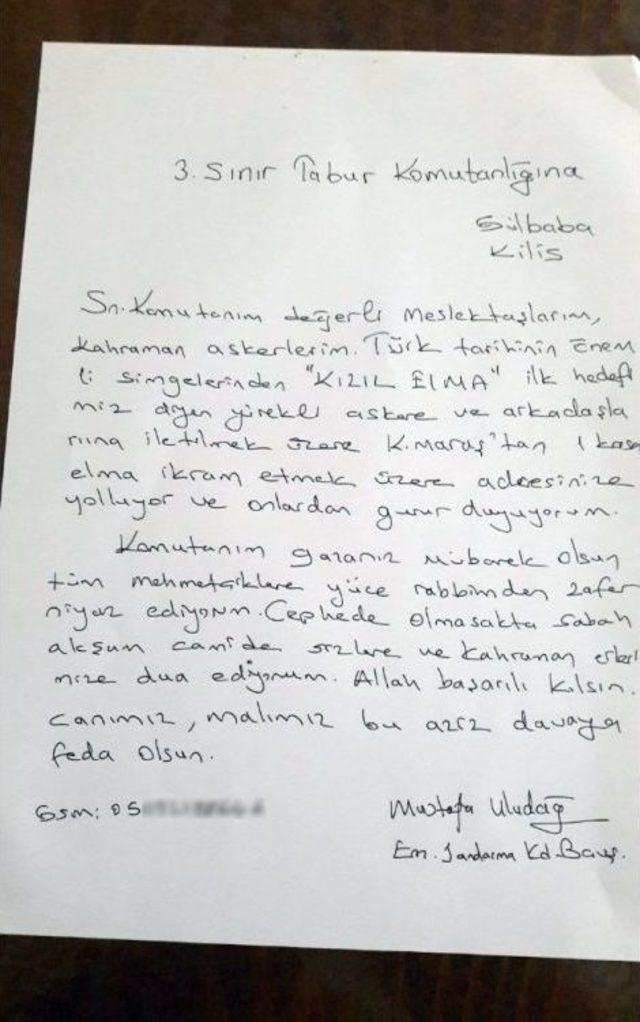 3. Sınır Tabur Komutanlığına
Gülbaba
Kilis
Sn. Komutanım değerli Meslektaşlarım,
kahraman askerlerim. Türk tarihinin önem
li simgelerinden "KIZIL ELMA" ilk hedefi
miz diyen yürekli askere ve arkadaşla
rına iletilmek üzere K.maraş'tan 1 kasa
elma ikram etmek üzere adresinize
yolluyor ve onlardan gurur duyuyorum.
Komutanım gazanız mübarek olsun
tüm mehmetçiklere yüce rabbimden zafer
niyaz ediyorum. Cephede olmasakta sabah
akşam camide sizlere ve kahraman erleri
mize dua ediyorum. Allah başarılı kılsın.
Canımız, malımız bu aziz davaya
feda olsun.
Gsm: 05
Mustafa Uludağ
Em. Jandarma Kd. Bçvş.